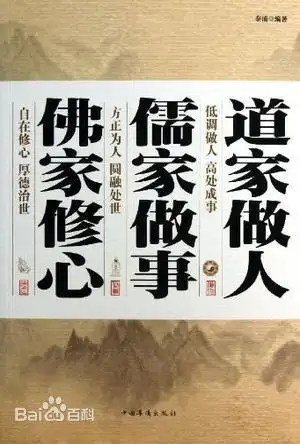 秦浦◎编著
道家做人
低调做人 高处成事
儒家做事
方正为人 圆融处世
佛家修心
自在修心 厚德治世
Baidu百科
中国华侨出版社